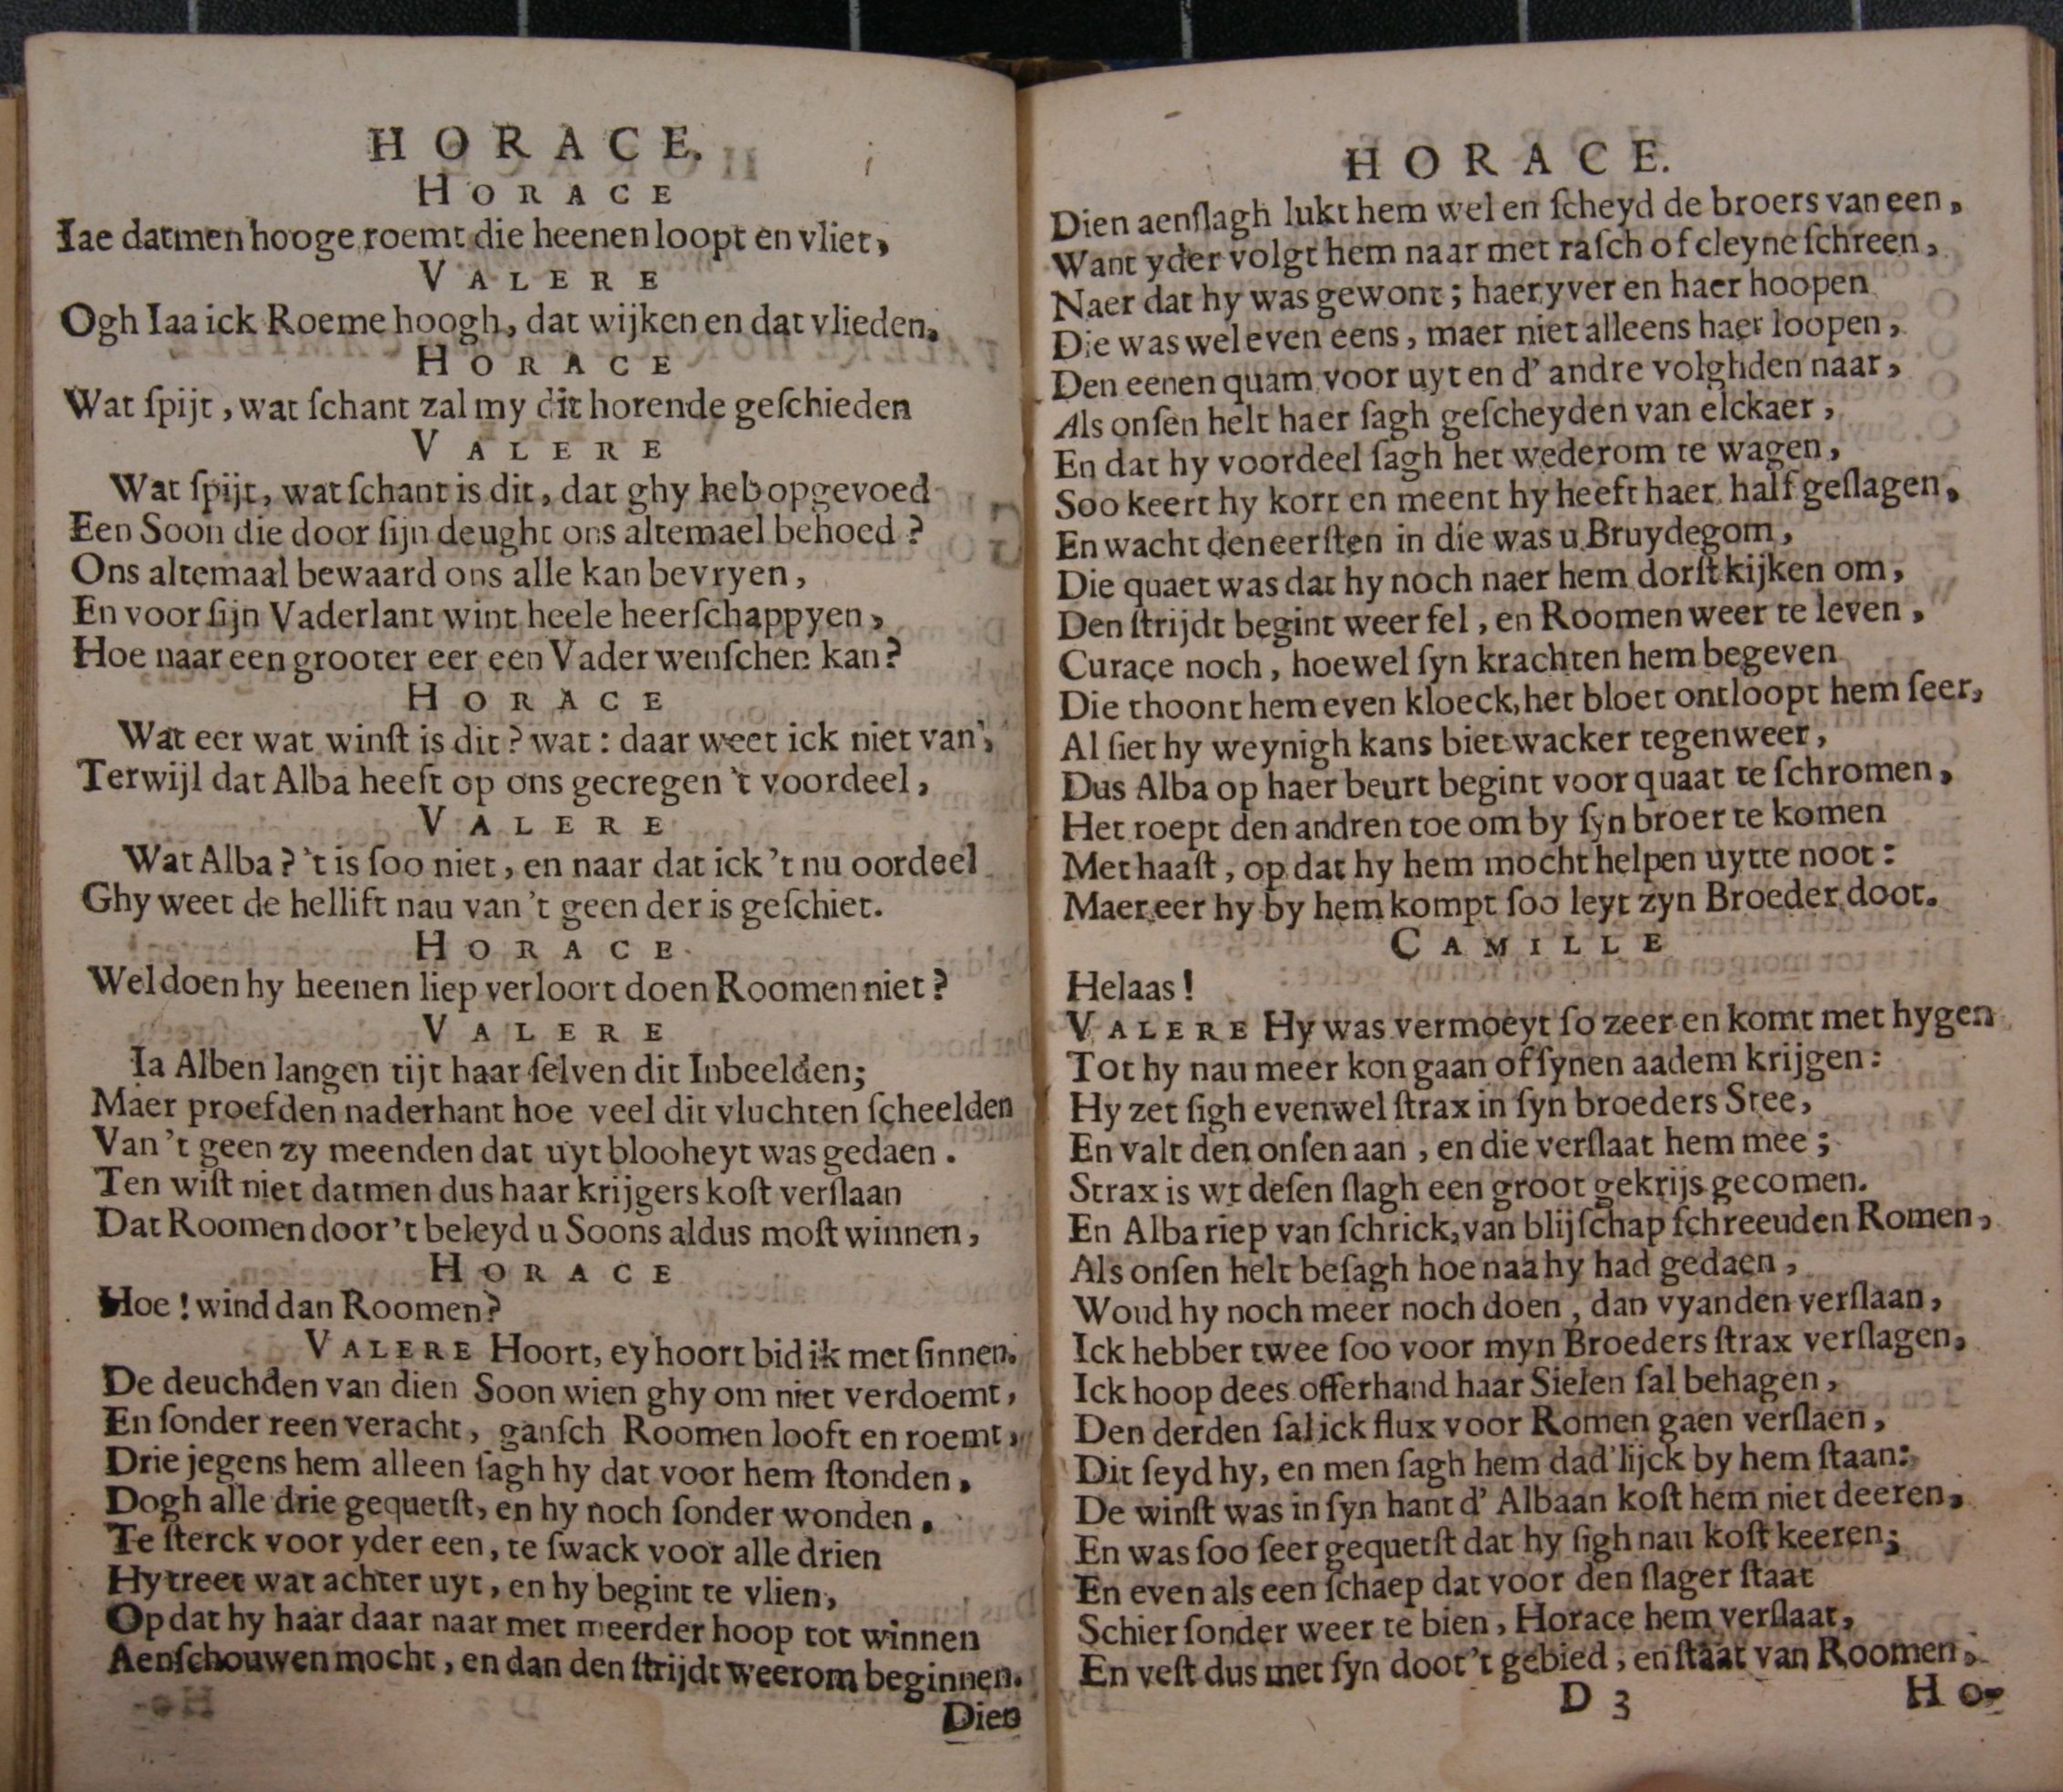 HORACE.
HORACE
Iae datmen hooge roemt die heenen loopt en vliet,
VALERE
Ogh Iaa ick Roeme hoogh, dat wijken en dat vlieden.
HORACE
Wat ſpijt, wat ſchant zal my dit horende geſchieden
VALERE
Wat ſpijt, wat ſchant is dit, dat ghy heb opgevoed
Een Soon die door ſijn deught ons altemael behoed?
Ons altemaal bewaard ons alle kan bevryen,
En voor ſijn Vaderlant wint heele heerſchappyen,
Hoe naar een grooter eer een Vader wenſchen kan?
HORACE
Wat eer wat winſt is dit? wat: daar weet ick niet van,
Terwijl dat Alba heeft op ons gecregen 't voordeel,
VALERE
Wat Alba? 't is ſoo niet, en naar dat ick 't nu oordeel
Ghy weet de hellift nau van 't geen der is geſchiet.
HORACE
Wel doen hy heenen liep verloort doen Roomen niet?
VALERE
Ia Alben langen tijt haar ſelven dit Inbeelden;
Maer proefden naderhant hoe veel dit vluchten ſcheelden
Van 't geen zy meenden dat uyt blooheyt was gedaen.
Ten wiſt niet datmen dus haar krijgers koſt verſlaan
Dat Roomen door 't beleyd u Soons aldus moſt winnen,
HORACE
Hoe! wind dan Roomen?
VALERE Hoort, ey hoort bid ik met ſinnen.
De deuchden van dien Soon wien ghy om niet verdoemt,
En ſonder reen veracht, ganſch Roomen looft en roemt,
Drie jegens hem alleen ſagh hy dat voor hem ſtonden,
Dogh alle drie gequetſt, en hy noch ſonder wonden,
Te ſterck voor yder een, te ſwack voor alle drien
Hy treet wat achter uyt, en hy begint te vlien,
Op dat hy haar daar naar met meerder hoop tot winnen
Aenſchouwen mocht, en dan den ſtrijdt weerom beginnen.
Dien
HORACE.
Dien aenſlagh lukt hem wel en ſcheyd de broers van een,
Want yder volgt hem naar met raſch of cleyne ſchreen,
Naer dat hy was gewont; haer yver en haer hoopen
Die was wel even eens, maer niet alleens haer loopen,
Den eenen quam voor uyt en d' andre volghden naar,
Als onſen helt haer ſagh geſcheyden van elckaer,
En dat hy voordeel ſagh het wederom te wagen,
Soo keert hy kort en meent hy heeft haer half geſlagen,
En wacht den eerſten in die was u Bruydegom,
Die quaet was dat hy noch naer hem dorſt kijken om,
Den ſtrijdt begint weer fel, en Roomen weer te leven,
Curace noch, hoewel ſyn krachten hem begeven
Die thoont hem even kloeck, het bloet ontloopt hem ſeer,
Al ſiet hy weynigh kans biet wacker tegenweer,
Dus Alba op haer beurt begint voor quaat te ſchromen,
Het roept den andren toe om by ſyn broer te komen
Met haaſt, op dat hy hem mocht helpen uytte noot:
Maer eer hy by hem kompt ſoo leyt zyn Broeder doot.
CAMILLE
Helaas!
VALERE Hy was vermoeyt ſo zeer en komt met hygen
Tot hy nau meer kon gaan of ſynen aadem krijgen:
Hy zet ſigh evenwel ſtrax in ſyn broeders Stee,
En valt den onſen aan, en die verſlaat hem mee;
Strax is wt deſen ſlagh een groot gekrijs gecomen.
En Alba riep van ſchrick, van blijſchap ſchreeuden Romen,
Als onſen helt beſagh hoe naa hy had gedaen,
Woud hy noch meer noch doen, dan vyanden verſlaan,
Ick hebber twee ſoo voor myn Broeders ſtrax verſlagen,
Ick hoop dees offerhand haar Sielen ſal behagen,
Den derden ſal ick flux voor Romen gaen verſlaen,
Dit ſeyd hy, en men ſagh hem dad'lijck by hem ſtaan:
De winſt was in ſyn hant d' Albaan koſt hem niet deeren,
En was ſoo ſeer gequetſt dat hy ſigh nau koſt keeren;
En even als een ſchaep dat voor den ſlager ſtaat
Schier ſonder weer te bien, Horace hem verſlaat,
En veſt dus met ſyn doot 't gebied, en ſtaat van Roomen,
D 3
Ho-